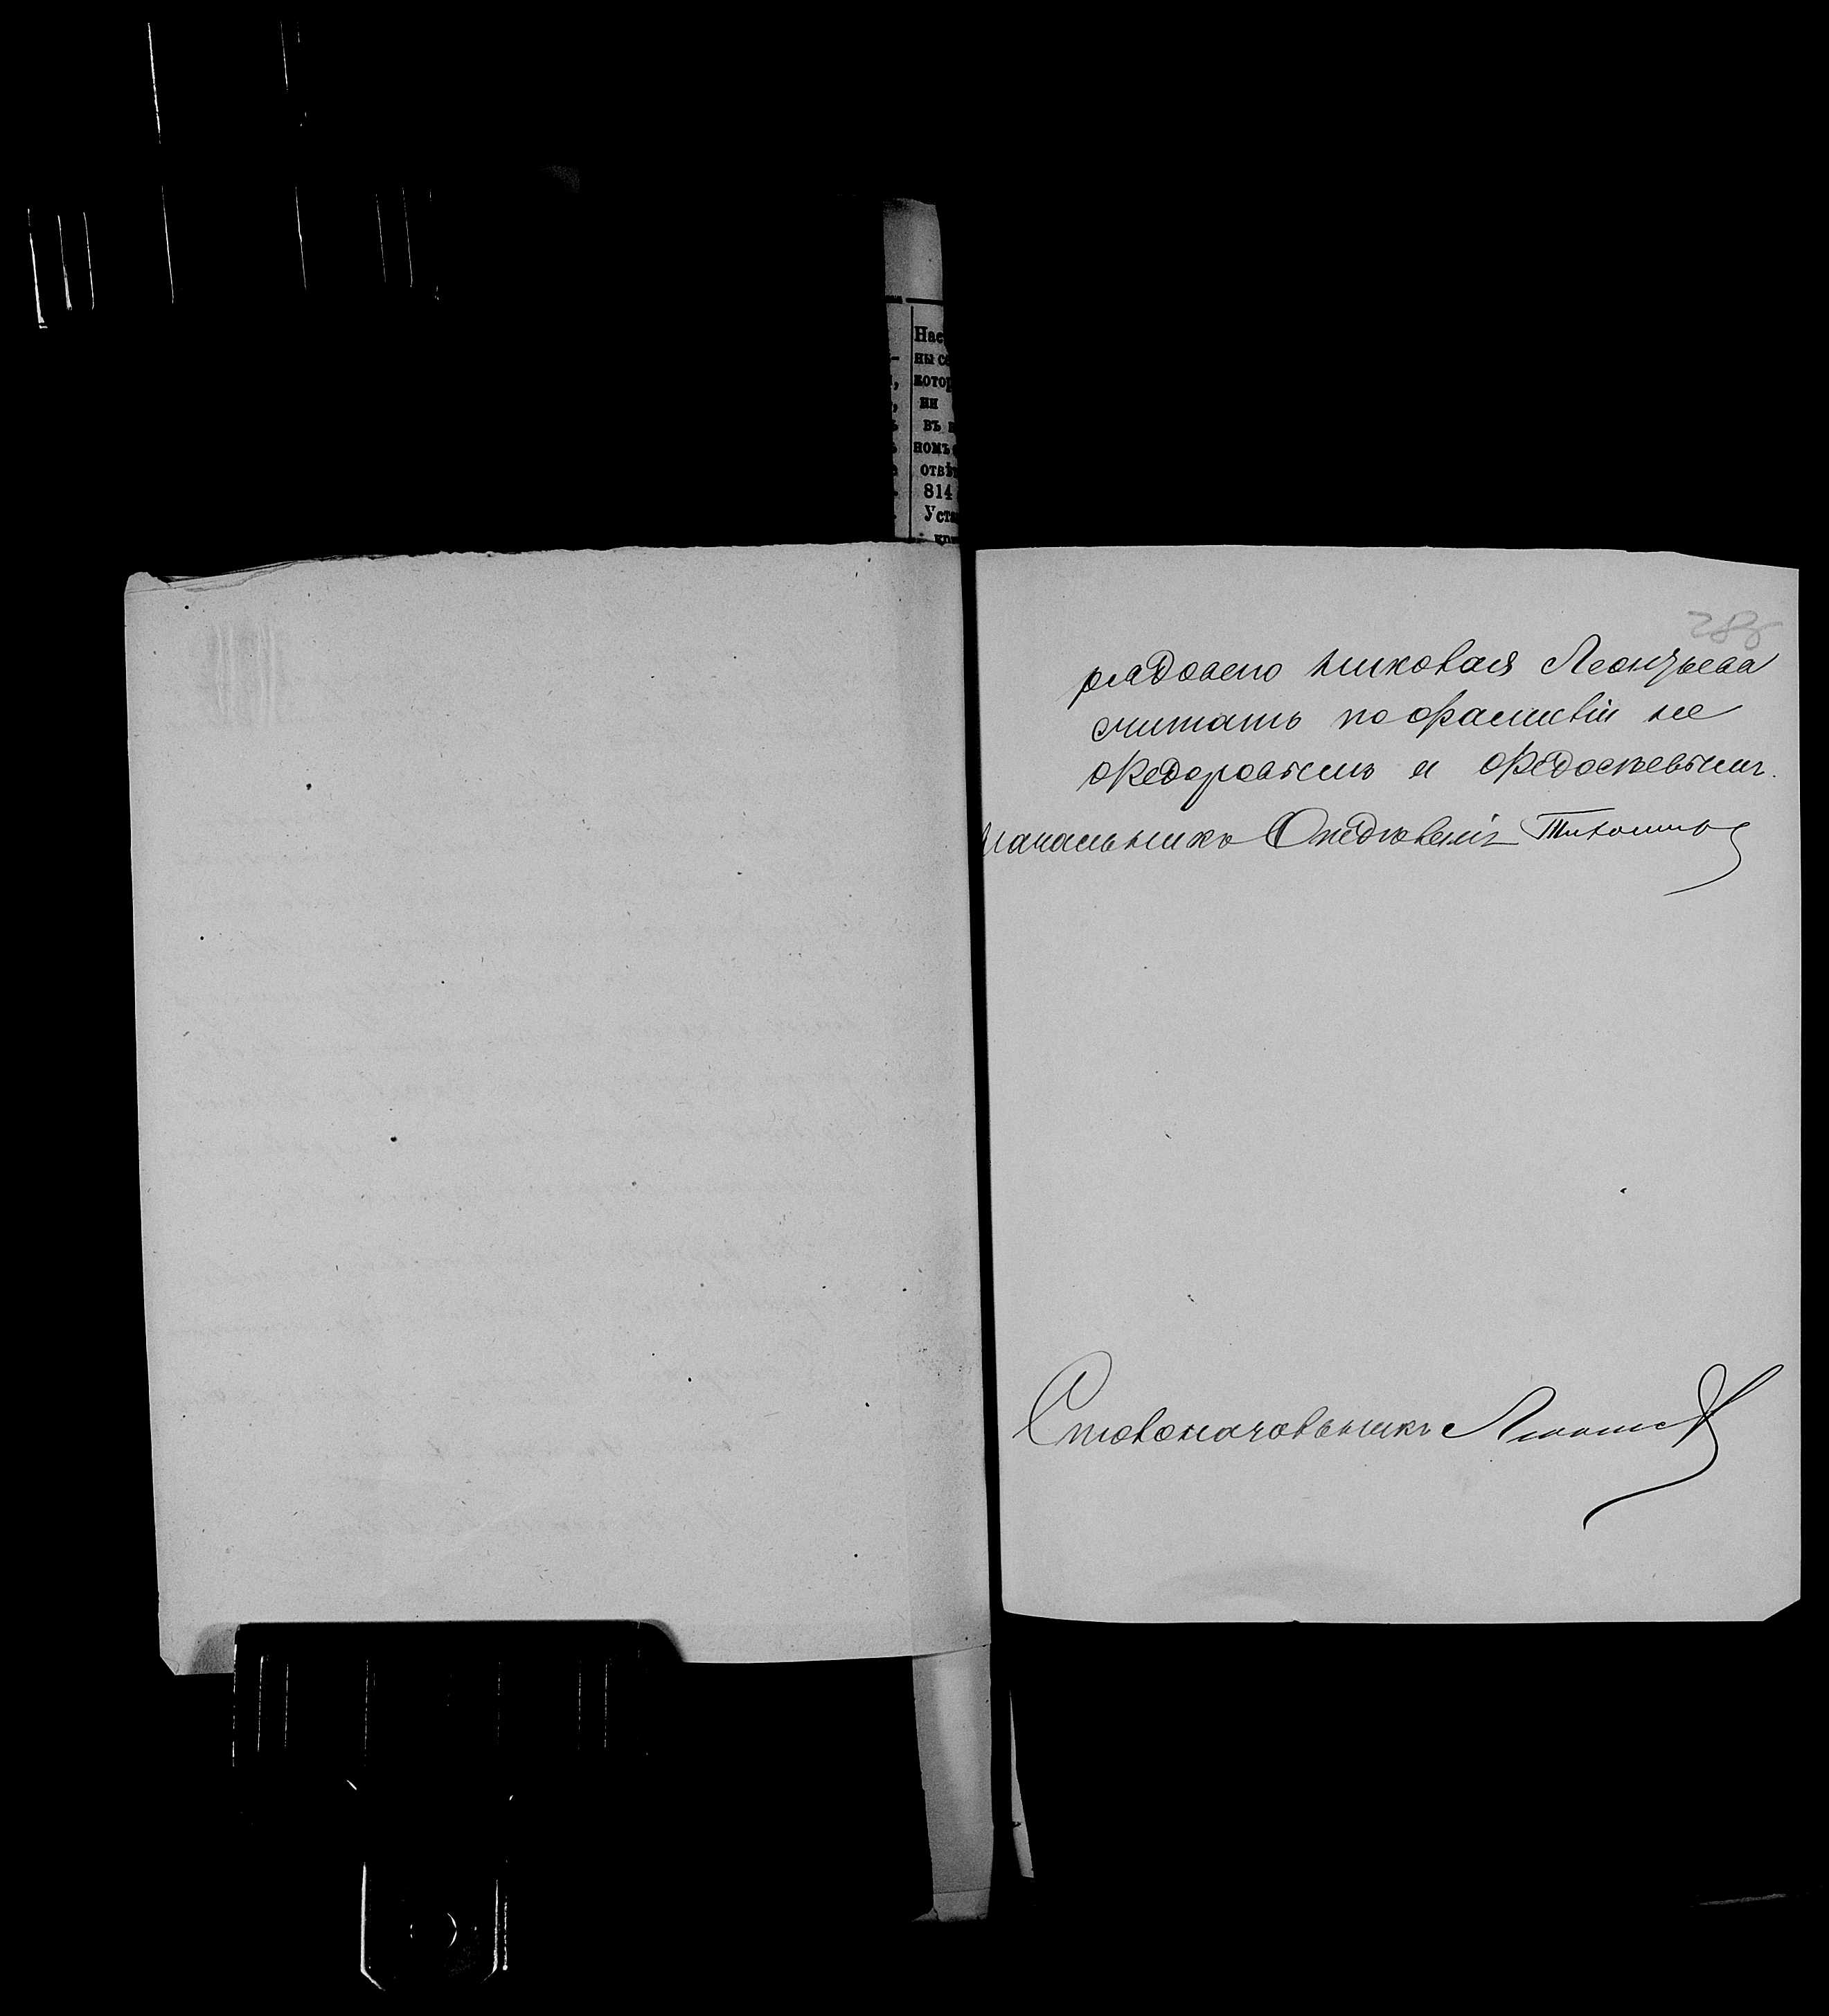 Нас
ны со
котор
ни
въ
номъ
отвѣ
814
Уста
288
рядового Николая Леонтьева
считать по фамиліи не
Федоровымъ и Федосѣевымъ.
Начальникъ Отдѣленія
Столоначальникъ